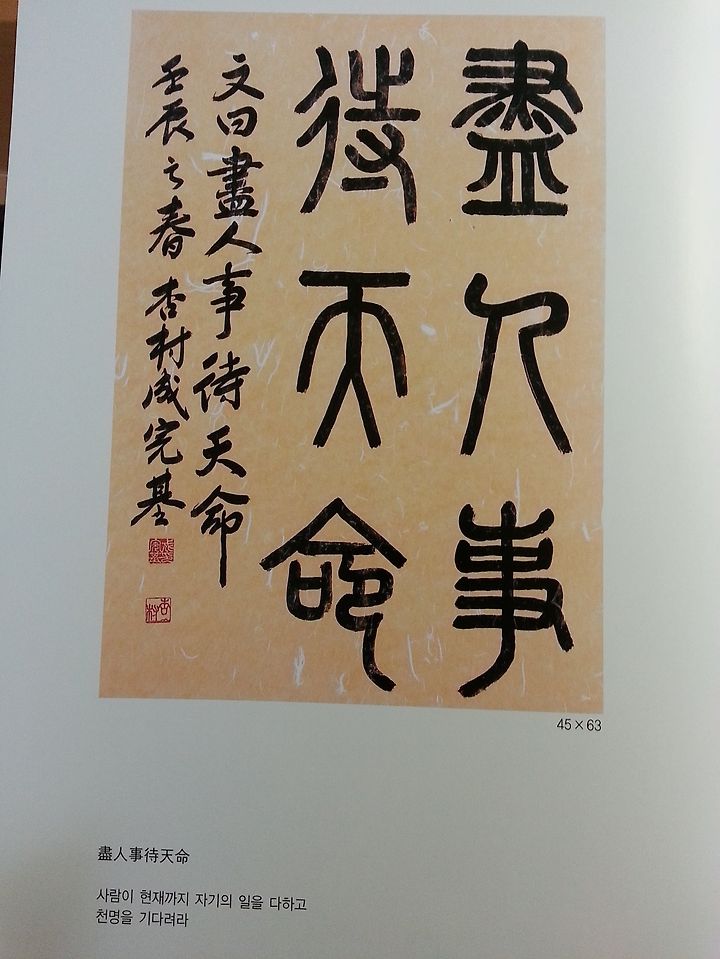 盡人事
待天命
文曰盡人事待天命
壬辰之春 杏村成完基
杏村
45×63
盡人事待天命
사람이 현재까지 자기의 일을 다하고
천명을 기다려라